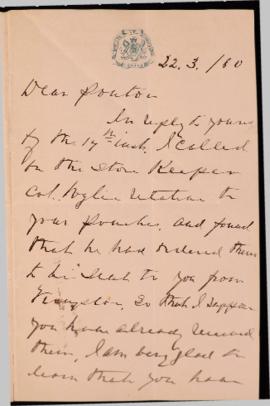 22.3./80
Dear Poutou
In reply to yours
of the 17th inst. I called
on the Store Keeper
Col. Wylie relative to
your Pouches, and found
that he had ordered them
to be sent to you from
Kingston, so that I suppose
you have already received
them, I am very glad to
learn that you have